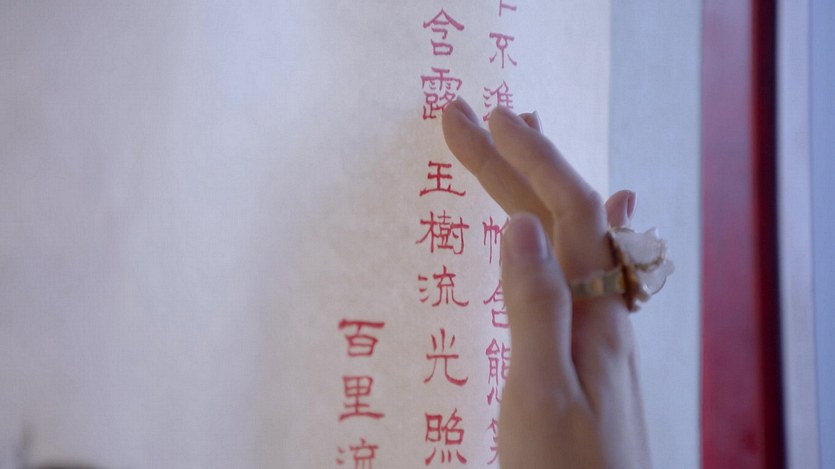 不進含態
含露玉樹流光照
百里流